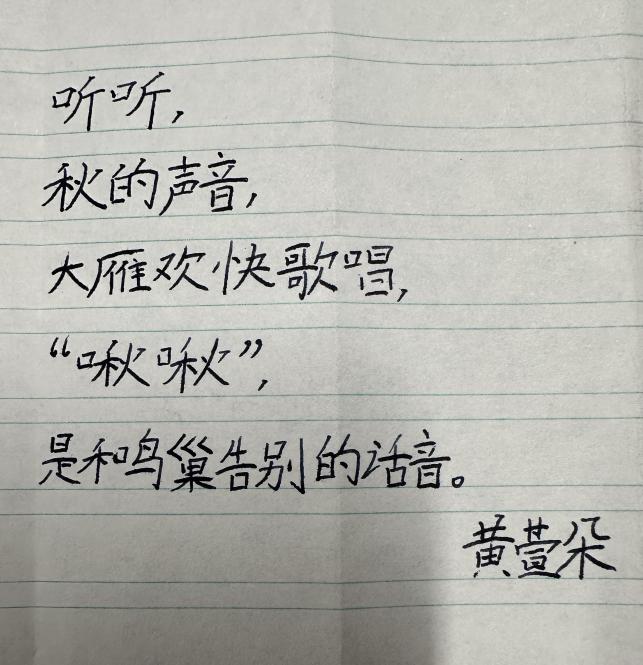 听听，
秋的声音，
大雁欢快歌唱，
“啾啾”，
是和鸣巢告别的话音。
黄萱朵